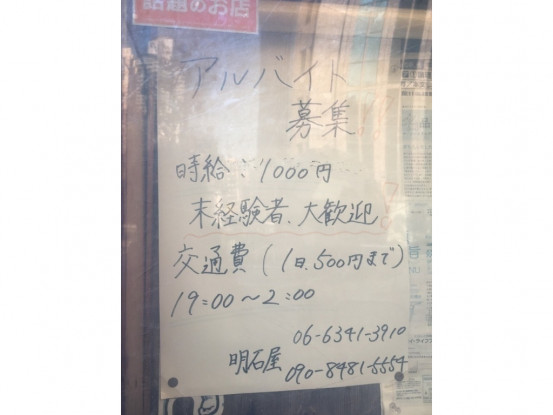 話題のお店
アルバイト
募集
時給:1000円
未経験者、大歓迎
交通費(1日、500円まで)
19:00〜2:00
06-6341-3910
明石屋
090-8481-5554